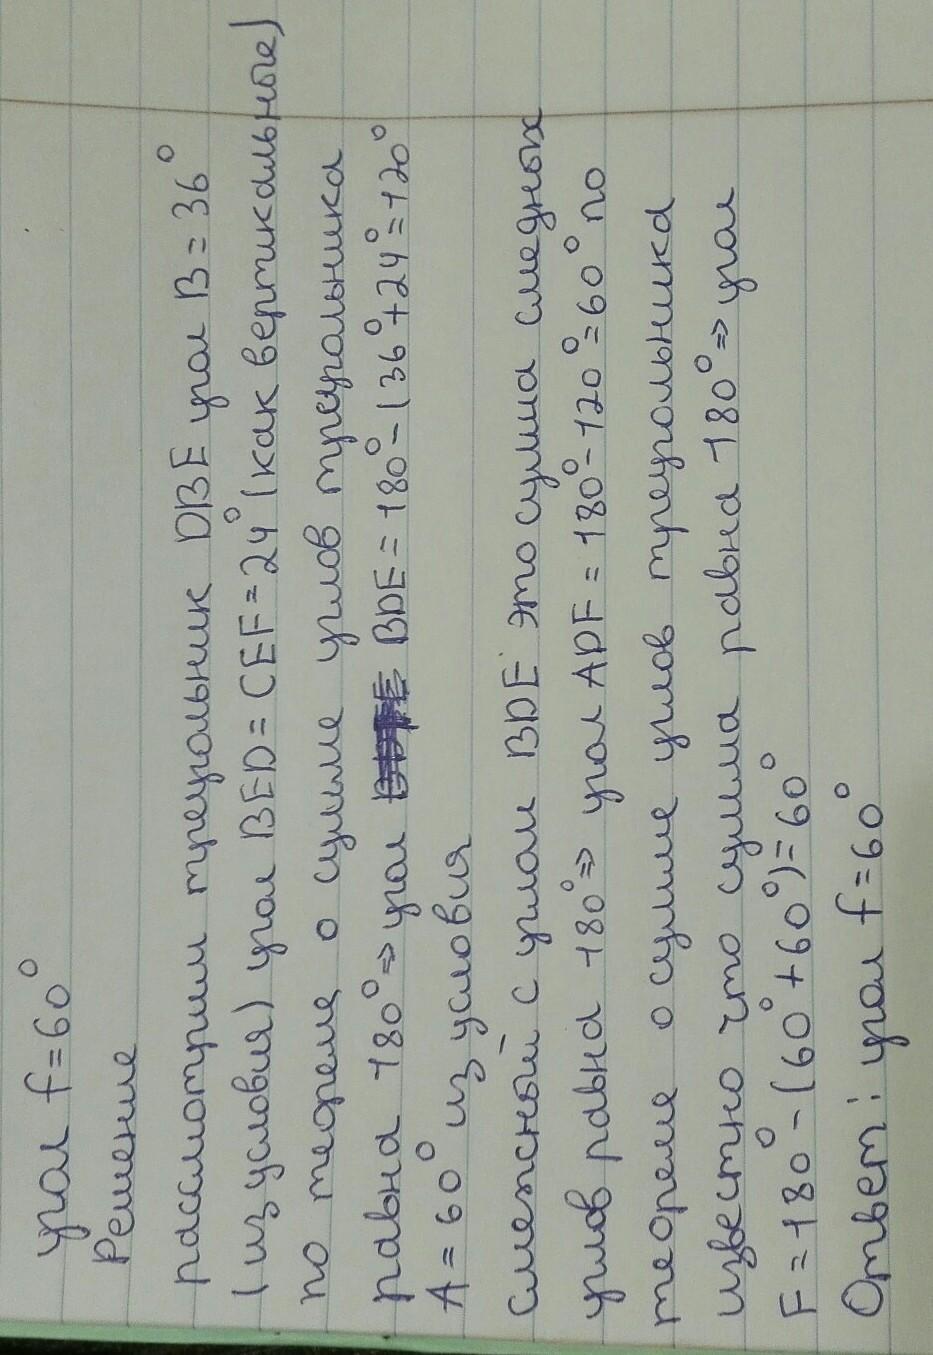 угол f=60°
Решение
рассмотрим треугольник DBE угол B=36°
(из условия) угол BED=CEF=24° (как вертикальные)
по теореме о сумме углов треугольника
равна 180°⇒ угол BDE=180°-(36°+24°=120°
A=60° из условия
Смежсный с углом BDE это сумма смедных
углов равна 180°⇒ угол ADF=180°-120°=60° по
теореме о сумме углов треугольника
известно что сумма равна 180°⇒ угол
F=180°-(60°+60°)=60°
Ответ: угол f=60°